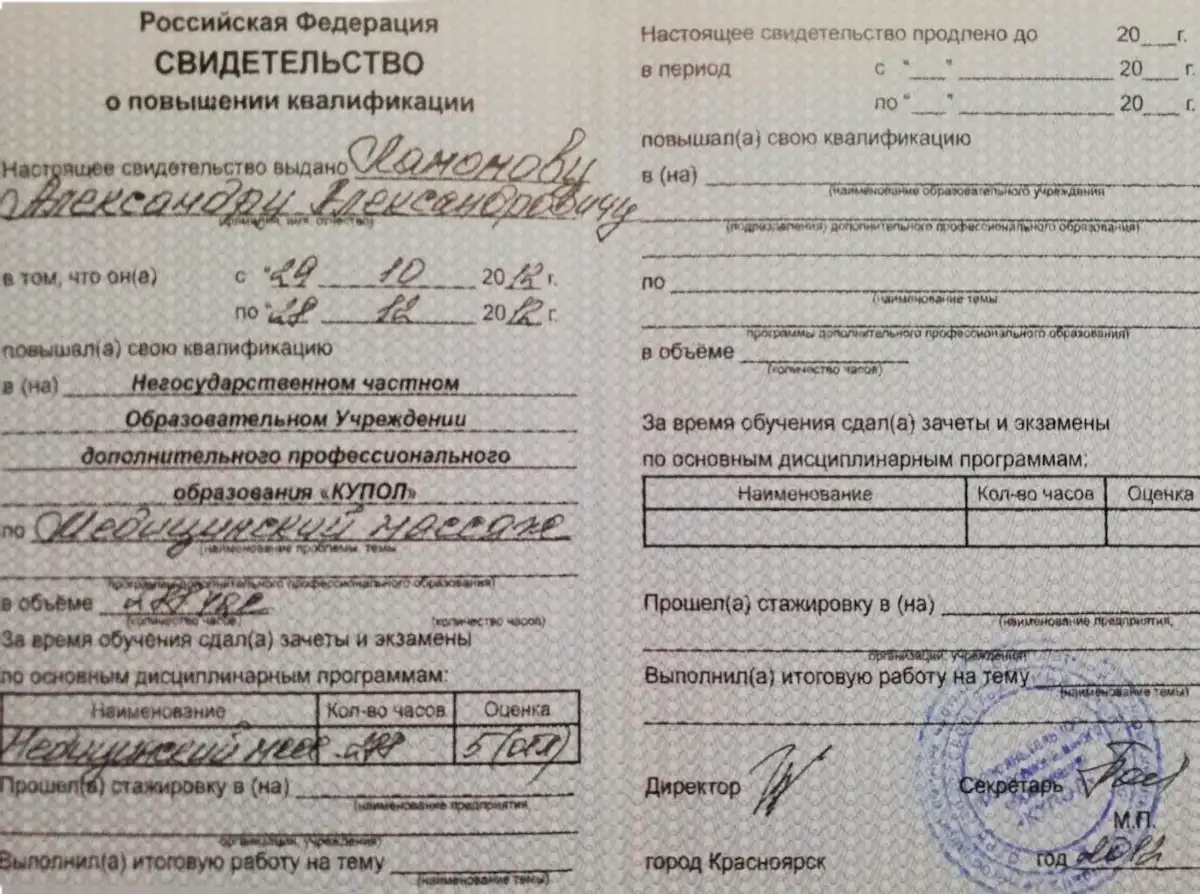 Российская Федерация
СВИДЕТЕЛЬСТВО
о повышении квалификации
Настоящее свидетельство выдано
Александру Александровичу
(фамилия, имя, отчество)
в том, что он(а) с "29 10 2012 г.
по "28 12 2012 г.
повышал(а) свою квалификацию
в (на) Негосударственном частном
Образовательном Учреждении
дополнительного профессионального
образования «КУПОЛ»
по Медицинский массаж
(наименование проблемы, темы
программы дополнительного профессионального образования)
в объёме 288 час
(количество часов) (количество часов)
За время обучения сдал(а) зачеты и экзамены
по основным дисциплинарным программам:
Наименование Кол-во часов Оценка
Медицинский масс 288 5 (отл)
Прошел(а) стажировку в (на)
(наименование предприятия,
организации, учреждения)
Выполнил(а) итоговую работу на тему
(наименование темы)
Настоящее свидетельство продлено до 20___г.
в период с "___" ___ 20___ г.
по "___" ___ 20___ г.
повышал(а) свою квалификацию
в (на)
(наименование образовательного учреждения
(подразделения) дополнительного профессионального образования)
по
(наименование темы
программы дополнительного профессионального образования)
в объёме
(количество часов)
За время обучения сдал(а) зачеты и экзамены
по основным дисциплинарным программам:
Наименование Кол-во часов Оценка
Прошел(а) стажировку в (на)
(наименование предприятия,
организации, учреждения)
Выполнил(а) итоговую работу на тему
(наименование темы)
Директор Секретарь
М.П.
город Красноярск год 2012
«КУПОЛ»